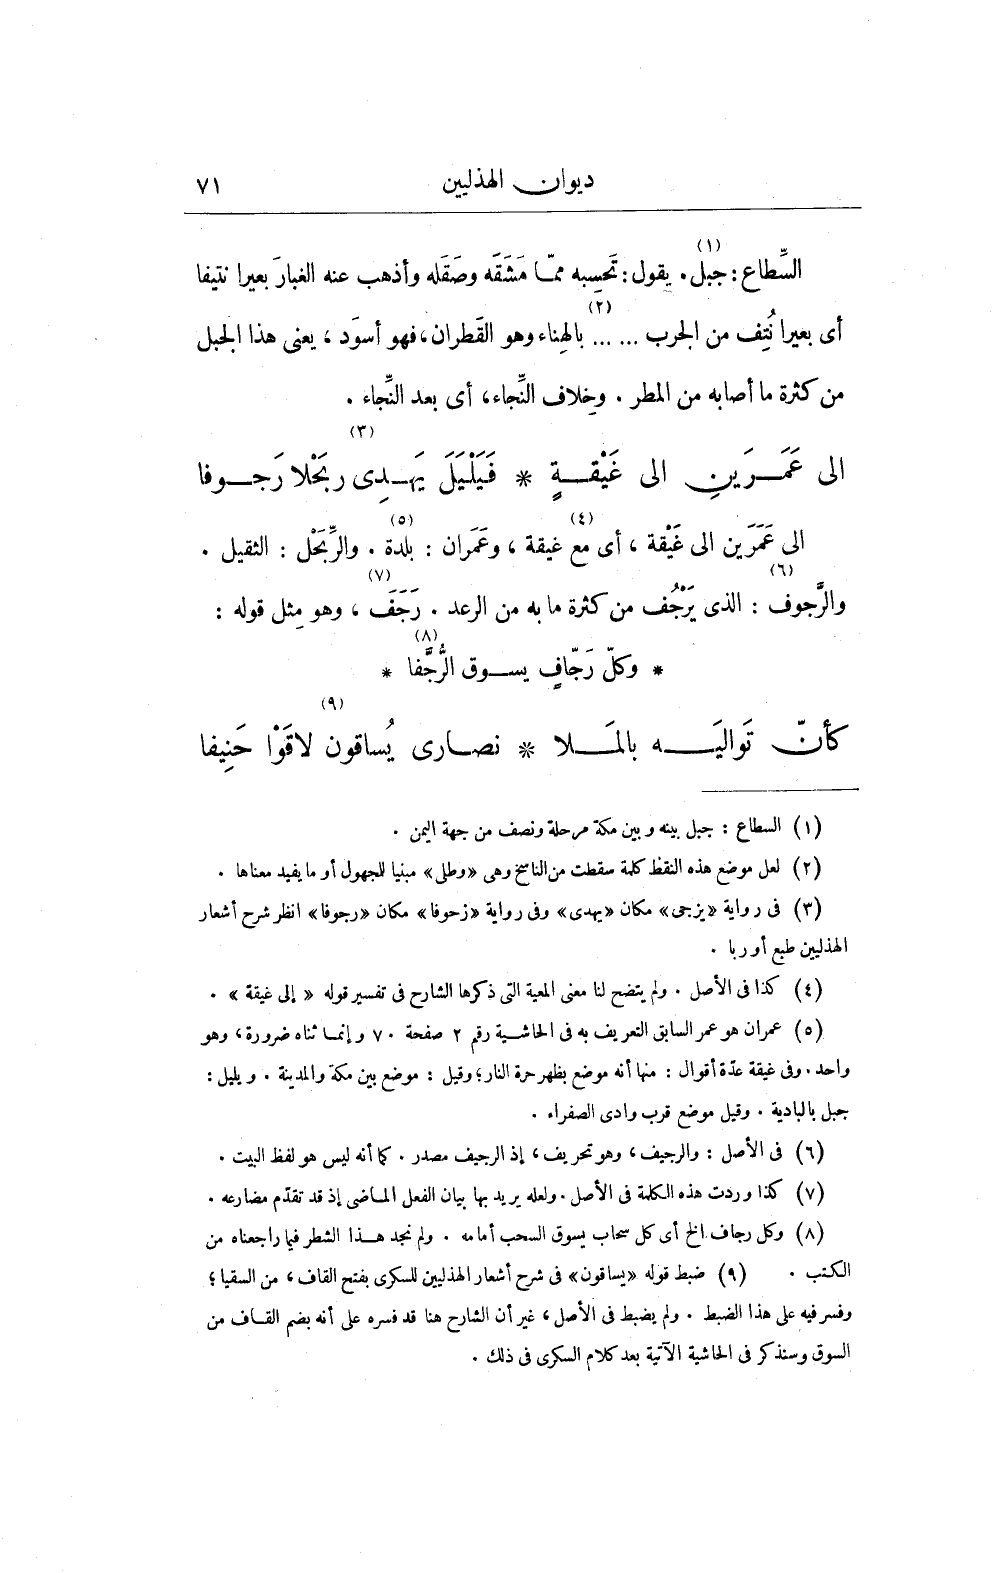 ديوان الهذليين ٧١
السِّطاع (١) : جبل. يقول : تَحسِبه ممّا مَشَقَه وصَقَله وأذهب عنه الغبارَ بعيرا نتيفا
أى بعيرا نُتِف من الجرب ... ... (٢) بالهِناء وهو القَطران، فهو أسوَد ، يعنى هذا الجبل
من كثرة ما أصابه من المطر . وخِلاف النِّجاء، أى بعد النِّجاء .
الى عَمَرَينِ الى غَيْقةٍ * فَيَلْيَلَ يَهدِى (٣) رِبَحْلا رَجوفا
الى عَمَرَين الى غَيْقة ، أى مع غيقة (٤) ، وعَمَران : بلدة (٥) . والرِّبَحْل : الثقيل .
والرَّجوف (٦) : الذى يَرْجُف من كثرة ما به من الرعد . رَجَفَ (٧) ، وهو مِثل قوله :
* وكلّ رَجّافٍ يسوق الرُّجَّفا (٨) *
كأنّ تَواليَه بالمَلا * نصارى يُساقون (٩) لاقَوْا حَنِيفا
(١) السطاع : جبل بينه و بين مكة مرحلة ونصف من جهة اليمن .
(٢) لعل موضع هذه النقط كلمة سقطت من الناسخ وهى «وطلى» مبنيا للجهول أو ما يفيد معناها .
(٣) فى رواية «يزجى» مكان «يهدى» وفى رواية «زحوفا» مكان «رجوفا» انظر شرح أشعار
الهذليين طبع أوربا .
(٤) كذا فى الأصل . ولم يتضح لنا معنى المعية التى ذكرها الشارح فى تفسير قوله « إلى غيقة » .
(٥) عمران هو عمر السابق التعريف به فى الحاشية رقم ٢ صفحة ٧٠ و إنما ثناه ضرورة ، وهو
واحد . وفى غيقة عدّة أقوال : منها أنه موضع بظهر حرة النار؛ وقيل : موضع بين مكة والمدينة . و يليل :
جبل بالبادية . وقيل موضع قرب وادى الصفراء .
(٦) فى الأصل : والرجيف ، وهو تحريف ، إذ الرجيف مصدر . كما أنه ليس هو لفظ البيت .
(٧) كذا وردت هذه الكلمة فى الأصل . ولعله يريد بها بيان الفعل الماضى إذ قد تقدّم مضارعه .
(٨) وكل رجاف الخ أى كل سحاب يسوق السحب أمامه . ولم نجد هذا الشطر فيما راجعناه من
الكتب . (٩) ضبط قوله «يساقون» فى شرح أشعار الهذليين للسكرى بفتح القاف ، من السقيا ؛
وفسر فيه على هذا الضبط . ولم يضبط فى الأصل ، غير أن الشارح هنا قد فسره على أنه بضم القاف من
السوق وسنذكر فى الحاشية الآتية بعد كلام السكرى فى ذلك .